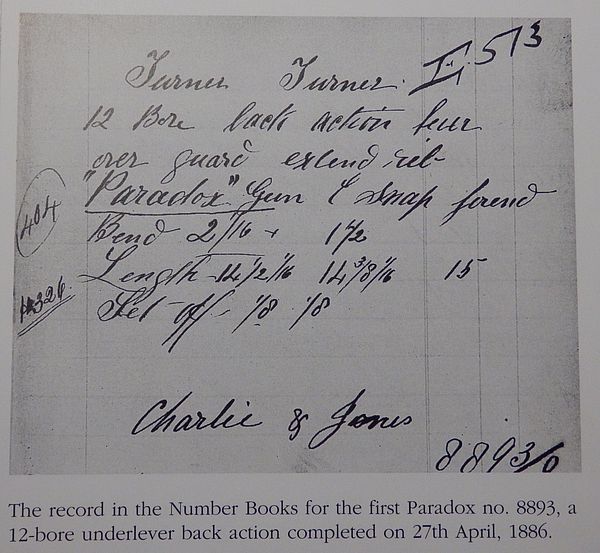 Turner Turner. II, 573
12 Bore back action lever
over guard extend rib
"Paradox" Gun & snap forend
404
Bend 2 1/16 1 1/2
Length 14 1/2 1/16 14 3/8 1/16 15
326
Set off 1/8 1/8
Charlie & Jones
8893/0
The record in the Number Books for the first Paradox no. 8893, a
12-bore underlever back action completed on 27th April, 1886.